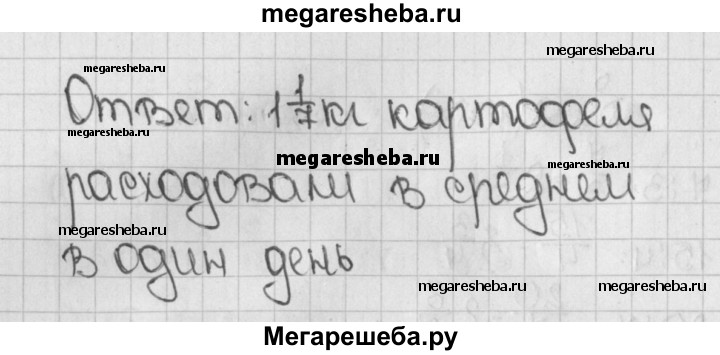 megaresheba.ru
megaresheba.ru
megaresheba.ru
Ответ: 1 1/7 кг картофеля
megaresheba.ru
megaresheba.ru
расходовали в среднем
в один день
megaresheba.ru
megaresheba.ru
Мегарешеба.ру